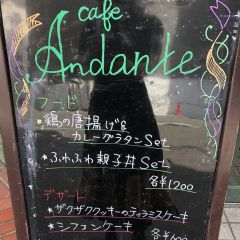 cafe
Andante
フード
★鶏の唐揚げ&
カレーグラタンSet
★ふわふわ親子丼Set
各¥1200
デザート
★ザクザククッキーのティラミスケーキ
★シフォンケーキ
各¥600